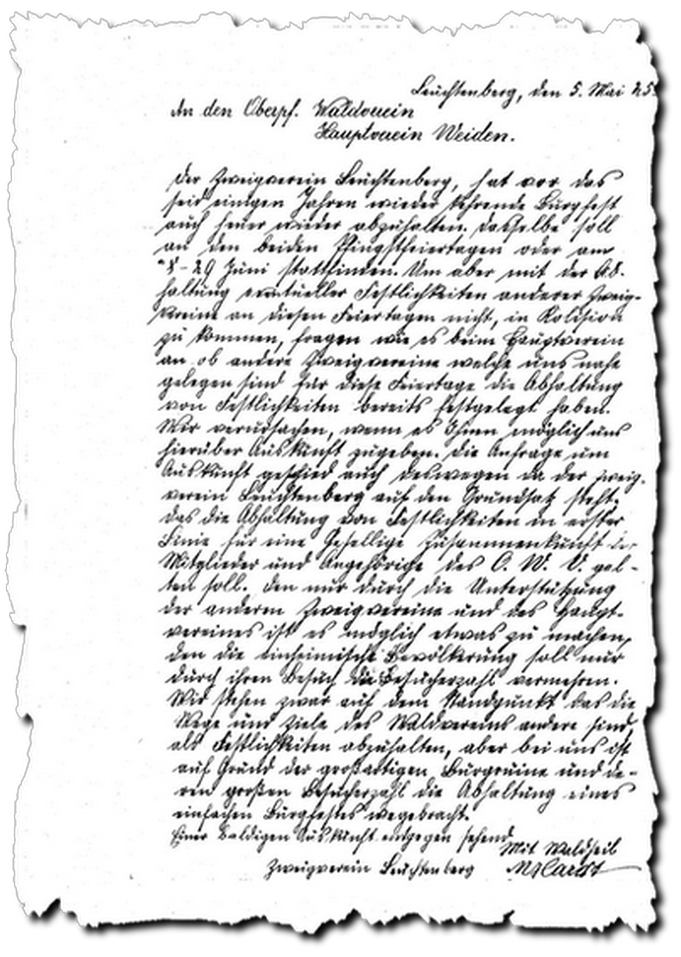 Leuchtenberg, den 5. Mai 25.
An den Oberpf. Waldverein
Hauptverein Weiden.
Der Zweigverein Leuchtenberg, hat vor das
seid einigen Jahren wieder kehrende Burgfest
auch heuer wieder abzuhalten. Dasselbe soll
an den beiden Pfingstfeiertagen oder am
29 Juni stattfinden. Um aber mit der Ab-
haltung eventueller Festlichkeiten anderer Zweig-
vereine an diesen Feiertagen nicht, in Kolision
zu kommen, fragen wir es beim Hauptverein
an ob andere Zweigvereine welche uns nahe
gelegen sind für diese Feiertage die Abhaltung
von Festlichkeiten bereits festgelegt haben.
Wir, wenn es Ihnen möglich uns
hierüber Auskunft zugeben. Die Anfrage um
Auskunft geschied auch deswegen da der Zweig-
verein Leuchtenberg auf den Grundsatz steht.
Das die Abhaltung von Festlichkeiten in erster
Linie für eine Gesellige Zusammenkunft der
Mitglieder und Angehörige des O. W. V. gel-
ten soll. Den nur durch die Unterstützung
der anderen Zweigvereine und des Haupt-
vereines ist es möglich etwas zu machen,
den die einheimische Bevölkerung soll nur
durch ihren Besuch die Besucherzahl vermehren.
Wir stehen zwar auf dem Standpunkt das die
Wege und Ziele des Waldvereins andere sind,
als Festlichkeiten abzuhalten, aber bei uns ist
auf Grund der großartigen Burgruine und de-
ren großen Besucherzahl die Abhaltung eines
einfachen Burgfestes
Einer baldigen Auskunft entgegen sehend
Mit Waldheil
Zweigverein Leuchtenberg